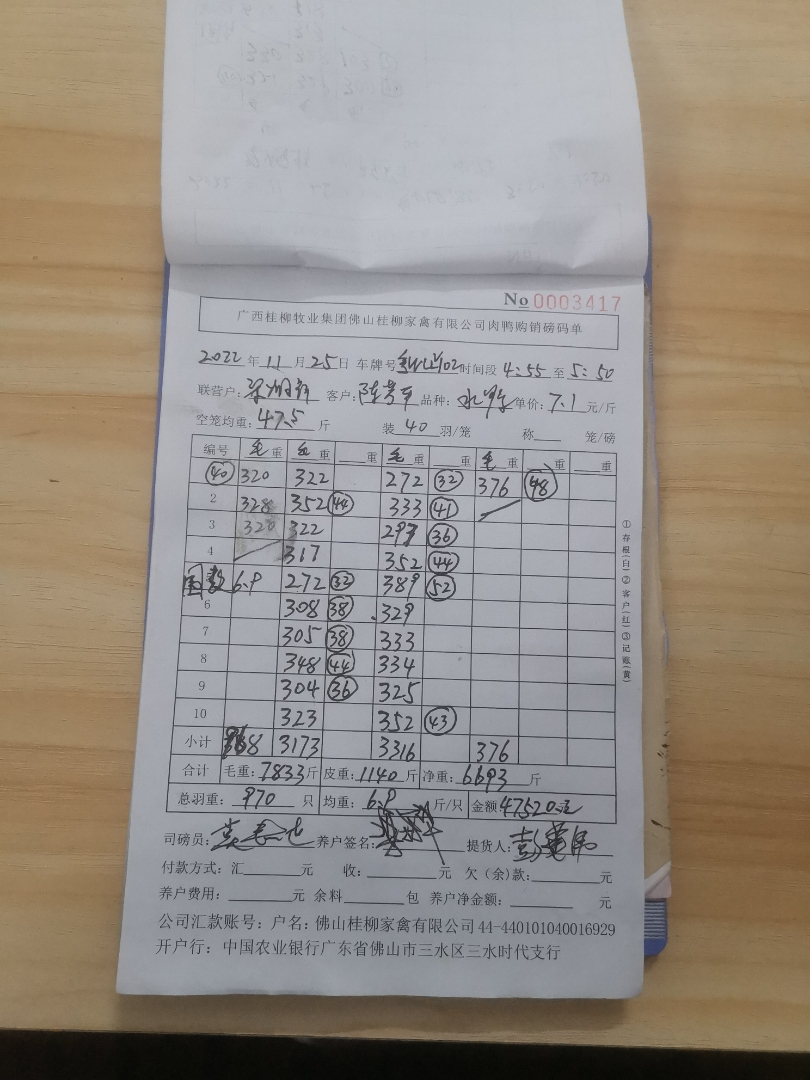 No 0003417
广西桂柳牧业集团佛山桂柳家禽有限公司肉鸭购销磅码单
2022年11月25日 车牌号 时间段 4:55 至 5:50
联营户: 客户: 品种: 单价: 7.1 元/斤
空笼均重: 47.5 斤 装 40 羽/笼 称 笼/磅
编号 毛重 毛重 重 毛重 重 毛重 重 重
40 320 322 272 32 376 48
2 328 352 44 333 41
3 320 322 297 36
4 317 352 44
6.9 272 32 389 52
6 308 38 329
7 305 38 333
8 348 44 334
9 304 36 325
10 323 352 43
小计 968 3173 3316 376
合计 毛重: 7833斤 皮重: 1140斤 净重: 6693斤
总羽重: 970 只 均重: 6.9 斤/只 金额: 47520元
司磅员: 养户签名: 提货人:
付款方式: 汇 元 收: 元 欠(余)款: 元
养户费用: 元 余料 包 养户净金额: 元
公司汇款账号: 户名: 佛山桂柳家禽有限公司 44-440101040016929
开户行: 中国农业银行广东省佛山市三水区三水时代支行
①存根(白)②客户(红)③记账(黄)